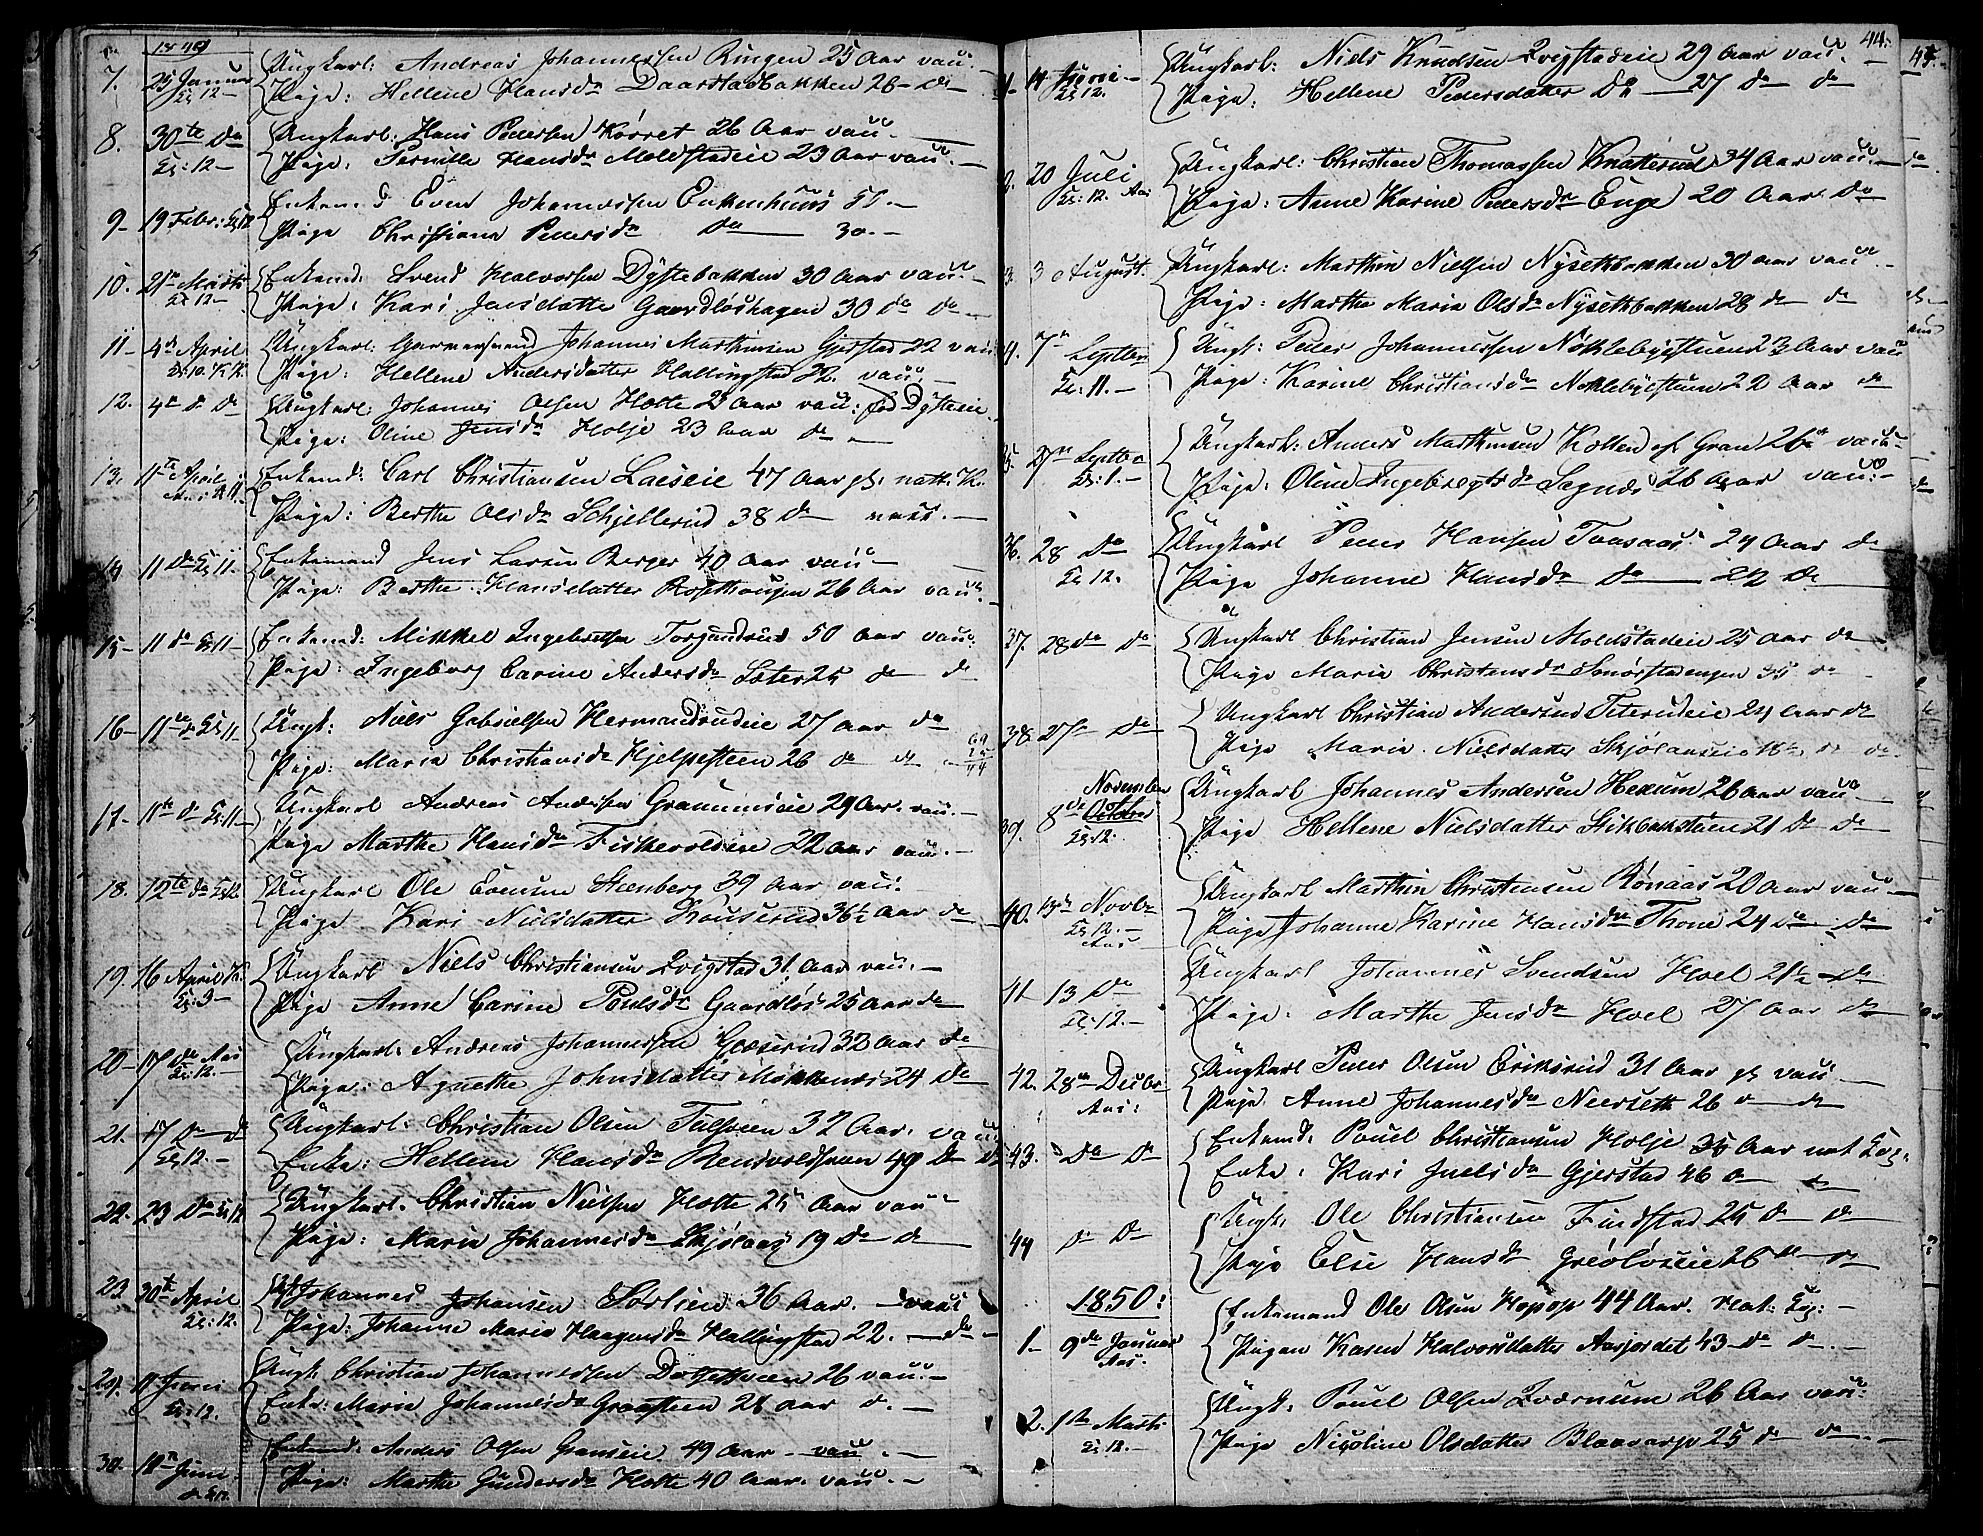 1849
7. 25 Januar Ungkarl: Andreas Johannessen Ringen 25 Aar vau.
Kl 12 — Pige: Hellene Hansdr Daarstadbakken 26 — Do —
8. 30te do Ungkarl: Hans Pedersen Kørret 26 Aar vau.
Kl: 12 — Pige: Pernille Hansdr Moldstadeie 23 Aar vau.
9 — 19 Febr: Kl 12 Enkemd Even Johannessen Enkenhuus 51. —
Pige Christiane Pedersdr do — 30. —
10. 21de Marts Enkemd: Svend Halvorsen Dystebakken 30 Aar vau.
Kl 12 — Pige: Kari Jensdatter Gaardløshagen 30 do do —
11 — 4de April Ungkarl: Johannes Mathiesen Gjerstad 22 vau
Kl: 10. Pige: Hellene Andersdatter Hallingstad 22. vau.
12. 4de do do Ungkarl: Johannes Olsen Holte 23 Aar vau: fød Dysteeie
Pige: Oline Jensdr Holje 23 Aar do —
13. 11te April Enkemd: Carl Christiansen Laeseie 47 Aar gl. natt. K.
Pige: Berthe Olsdr Schjellerud 38 do vau. —
14 11 do Kl 11. Enkemand Jens Larsen Berger 40 Aar vau —
Pige: Berthe Hansdatter Rosethaugen 26 Aar vau.
15 — 11 do Kl 11 — Enkemd: Mikkel Ingebretsen Torgundrud 50 Aar vau.
Pige: Ingeborg Carine Andersdr Sæter 25 do do
16 — 11te do Kl 11 Ungk: Niels Gabrielsen Hermandrudeie 27 Aar do
Pige: Maria Christiansdr Hjelpesteen 26 do do
69
25
44
17 — 11te do Kl: 11 — Ungkarl Andreas Andersen Graunnseie 29 Aar. vau. —
Pige Marthe Hansdr Fiskevoldeie 22 Aar vau. —
18. 12te do Kl 12. Ungkarl Ole Evensen Steenberg 39 Aar vau.
Pige Kari Nielsdatter Kouserud 36½ Aar do
19. 16 April Ungkarl Niels Christiansen Qvigstad 31 Aar vau. —
Kl: 3 — Pige Anne Carine Poulsdr Gaardløs 25 Aar do
20 — 17 do Aas Ungkarl: Andreas Johannessen Gooserud 32 Aar do
Kl: 12. — Pige: Agnethe Johnsdatter Mokkenæs 24 do
21. 17 do do Ungkarl: Christian Olsen Tulsveen 32 Aar. vau.
Kl 12. — Enke: Hellene Hansdr Rensvoldsveen 49 do do
22. 23 do Kl 12 Ungkarl. Christian Nielsen Holte 25 Aar vau
Pige: Maria Johannesdr Skjølaas 19 do do
23 30te April Ungk Johannes Johansen Sørlien 36 Aar. — vau
Kl: 12. Pige: Johanne Maria Haagensdr Hallingstad 22. — do —
24. 11 Juni Ungk Christian Johannessen Dalsetveen 26 vau. —
Kl: 12. Enke: Maria Johannesdr Graasteen 28 Aar do —
30. 11te Juni Enkemd: Anders Olsen Granseie 49 Aar — vau. —
do Kl 12. Pige: Marthe Gundersdr Holte 40 Aar. vau. —
44.
11 Juni — Ungkarl: Niels Knudsen Qvigstadeie 29 Aar vau. —
Kl 12. Pige: Hellene Pedersdatter do — 27 do do
2. 20 Juli Ungkarl: Christian Thomassen Knatterud 34 Aar vau. —
Kl: 12. Aas Pige: Anne Karine Pedersdr Enge 20 Aar do
3 3 August. Ungkarl: Marthin Nielsen Nysethbakken 30 Aar vau. —
Pige: Marthe Maria Olsdr Nysethbakken 28 do do
4. 7de Septbr Ungk: Peder Johannessen Nøklebyestuen 23 Aar vau
Kl: 11. — Pige: Karine Christiansdr Nøklebyestuen 22 Aar do
35. 27de Septbr Ungkarl: Anders Mathiesen Kollen af Gran 26 Aar vau.
Kl: 1. — Pige: Oline Ingebregtsdr Sognæs 26 Aar vau: —
36. 28 do Ungkarl Peder Hansen Toosaas 24 Aar do
Kl 12. Pige Johanne Hansdr do — 22 do
37. 28 do do Ungkarl Christian Jensen Moldstadeie 25 Aar do
Pige Maria Christensdr Sønørstadengen 35 do
38. 27de do Ungkarl Christian Andersen Teterudeie 24 Aar do
Pige Maria Nielsdatter Skjølaaseie do do
39. 8de November Ungkarl Johannes Andersen Hexum 26 Aar vau.
Kl 12. Pige Hellene Nielsdatter Stikbakstuen 21 do do
40. 13de Novbr Ungkarl Marthin Christensen Rønaas 20 Aar vau —
Kl 12. — Aas Pige Johanne Karine Hansdr Thone 24 do do
41 13 do Ungkarl Johannes Svendsen Hoel 21½ do
Kl: 12. — Pige: Marthe Jensdr Hoel 27 Aar do
42. 28de Desbr Ungkarl Peder Olsen Eriksrud 31 Aar gl vau. —
Aas: Pige Anne Johannesdr Neerseth 26 do do
43. do do Enkemd. Pouel Christiansen Holje 35 Aar nat Kop:
Enke: Kari Juelsdr Gjerstad 46 do
44 do do Ungk: Ole Christiansen Findstad 25 do do
Pige Else Hansdr Greøløseie 26 do do
1850:
1. — 9de Januar Enkemand Ole Olsen Hopop 44 Aar. Nat: Kop: —
Aas. Pigen Karen Halvorsdatter Aasjordet 43 do do —
2. 1ste Marts Ungk: Pouel Olsen Qværnum 26 Aar vau:
Kl 12. — Pige Nicoline Olsdatter Blaavarp 25 do do —
45.